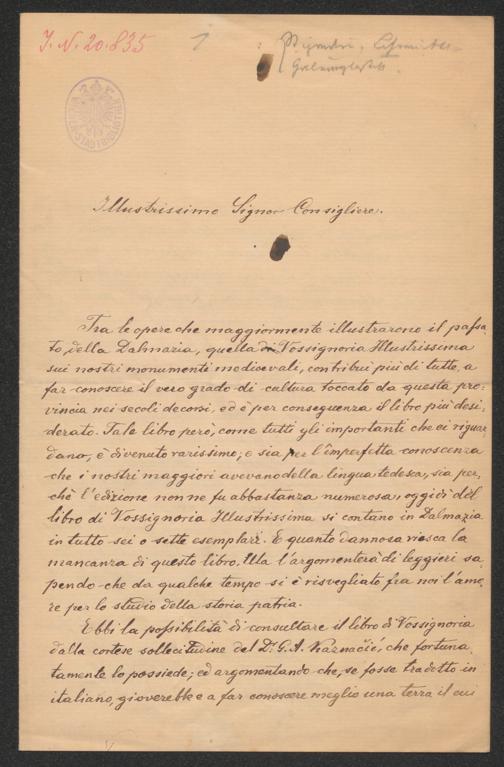 J. N. 20.835
1
Illustrissimo Signor Consigliere.
Tra le opere che maggiormente illustrarono il passa-
to della Dalmazia, quella di Vossignoria Illustrissima
sui nostri monumenti medioevali, contribuì più di tutte, a
far conoscere il vero grado di cultura toccato da questa pro-
vincia nei secoli decorsi, ed è per conseguenza il libro più desi-
derato. Tale libro però, come tutti gli importanti che ci riguar-
dano, è divenuto rarissimo; e sia per l'imperfetta conoscenza
che i nostri maggiori avevano della lingua tedesca, sia per-
chè l'edizione non ne fu abbastanza numerosa, oggidì del
libro di Vossignoria Illustrissima si contano in Dalmazia
in tutto sei o sette esemplari. E quanto dannosa riesca la
mancanza di questo libro, Ella l'argomenterà di leggieri sa-
pendo che da qualche tempo si è risvegliato fra noi l'amo-
re per lo studio della storia patria.
Ebbi la possibilità di consultare il libro di Vossignoria
dalla cortese sollecitudine del Dr. G. A. che fortuna-
tamente lo possiede; ed argomentando che, se fosse tradotto in
italiano, gioverebbe a far conoscere meglio una terra il cui